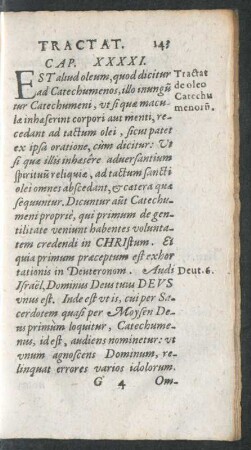 TRACTAT. 143
CAP. XXXXI.
EST aliud oleum, quod dicitur
ad Catechumenos, illo inungũ
tur Catechumeni, vt si quæ macu-
læ inhæserint corpori aut menti, re-
cedant ad tactum olei, sicut patet
ex ipsa oratione, cùm dicitur: Vt
si quæ illis inhæsere aduersantium
spirituũ reliquiæ, ad tactum sancti
olei omnes abscedant, & cætera quæ
sequuntur. Dicuntur aũt Catechu-
meni propriè, qui primum de gen-
tilitate veniunt habentes volunta-
tem credendi in CHRIstum. Et
quia primum præceptum est exhor
tationis in Deuteronom. Audi
Israël, Dominus Deus tuus DEVS
vnus est. Inde est vt is, cui per Sa-
cerdotem quasi per Moysen De-
us primùm loquitur, Catechume-
nus, id est, audiens nominetur: vt
vnum agnoscens Dominum, re-
linquat errores varios idolorum.
G 4 Om-
Tractat
de oleo
Catechu
menorũ.
Deut. 6.